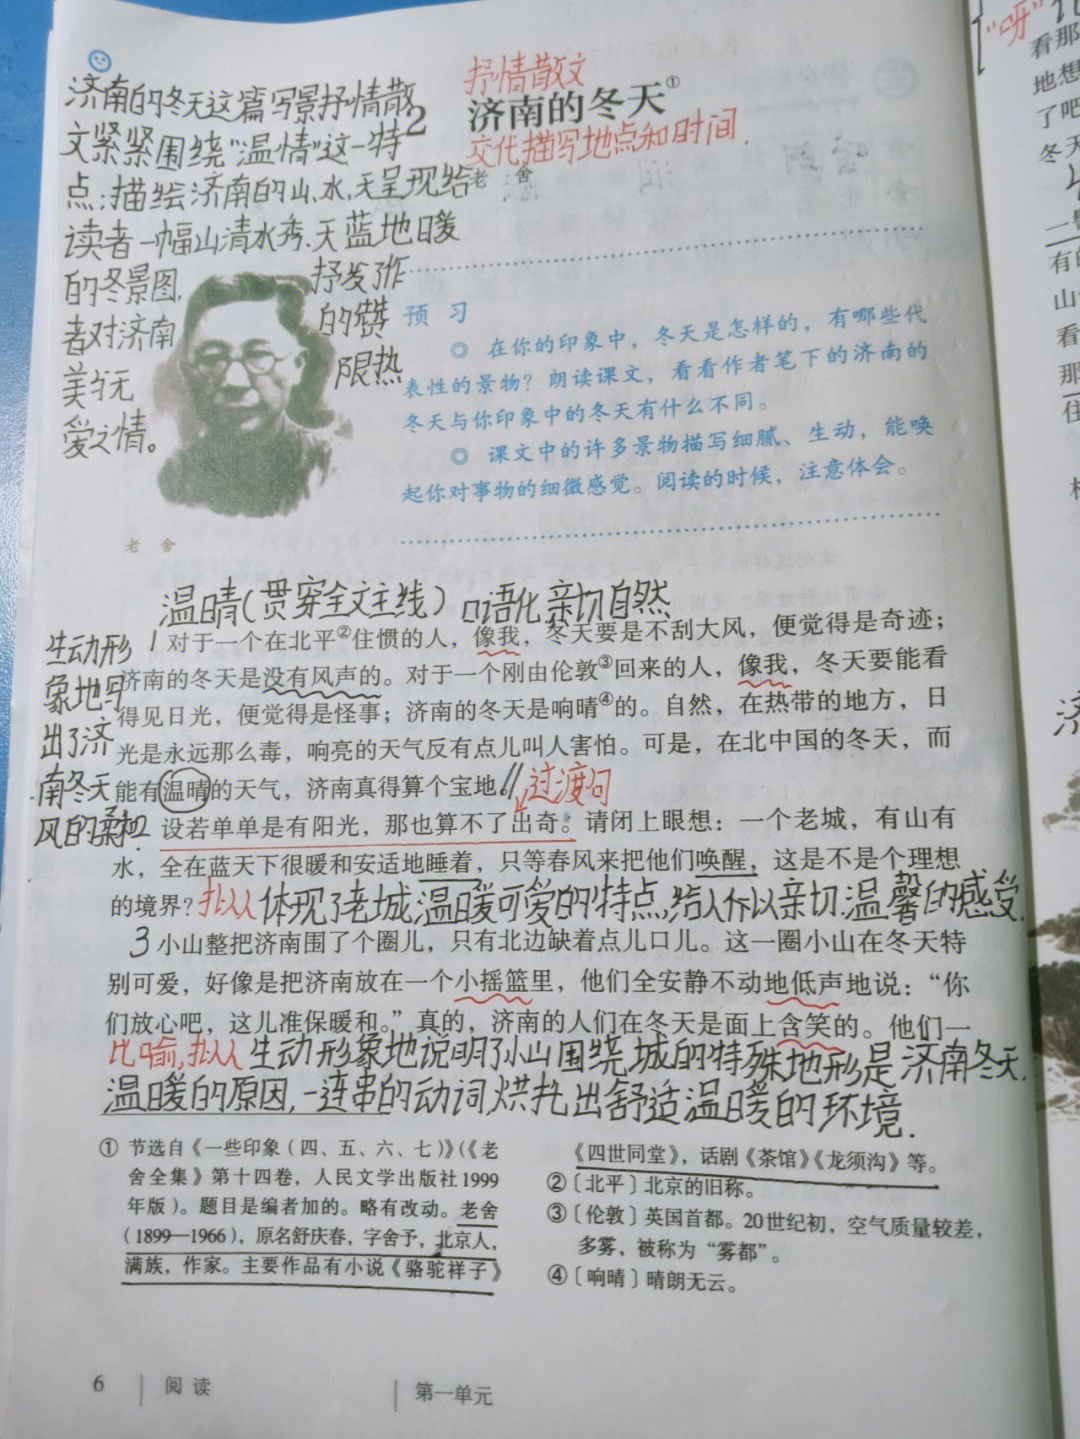 济南的冬天这篇写景抒情散
文紧紧围绕"温情"这一特
点:描绘济南的山、水、天呈现给
读者一幅山清水秀、天蓝地暖
的冬景图, 抒发了作
者对济南 的赞
美与无 限热
爱之情。
抒情散文
2 济南的冬天①
交代描写地点和时间.
老 舍
预 习
◎ 在你的印象中，冬天是怎样的，有哪些代
表性的景物？朗读课文，看看作者笔下的济南的
冬天与你印象中的冬天有什么不同。
◎ 课文中的许多景物描写细腻、生动，能唤
起你对事物的细微感觉。阅读的时候，注意体会。
老 舍
温晴(贯穿全文主线) 口语化亲切自然
生动形
象地写
出了济
南冬天
风的柔和
1 对于一个在北平②住惯的人，像我，冬天要是不刮大风，便觉得是奇迹；
济南的冬天是没有风声的。对于一个刚由伦敦③回来的人，像我，冬天要能看
得见日光，便觉得是怪事；济南的冬天是响晴④的。自然，在热带的地方，日
光是永远那么毒，响亮的天气反有点儿叫人害怕。可是，在北中国的冬天，而
能有温晴的天气，济南真得算个宝地。// 过渡句
2 设若单单是有阳光，那也算不了出奇。请闭上眼想：一个老城，有山有
水，全在蓝天下很暖和安适地睡着，只等春风来把他们唤醒，这是不是个理想
的境界？拟人 体现了老城温暖可爱的特点,给人以亲切温馨的感受.
3 小山整把济南围了个圈儿，只有北边缺着点儿口儿。这一圈小山在冬天特
别可爱，好像是把济南放在一个小摇篮里，他们全安静不动地低声地说：“你
们放心吧，这儿准保暖和。”真的，济南的人们在冬天是面上含笑的。他们一
比喻,拟人 生动形象地说明了小山围绕城的特殊地形是济南冬天
温暖的原因,一连串的动词,烘托出舒适温暖的环境.
① 节选自《一些印象（四、五、六、七）》（《老
舍全集》第十四卷，人民文学出版社1999
年版）。题目是编者加的。略有改动。老舍
（1899—1966），原名舒庆春，字舍予，北京人，
满族，作家。主要作品有小说《骆驼祥子》
《四世同堂》，话剧《茶馆》《龙须沟》等。
②〔北平〕北京的旧称。
③〔伦敦〕英国首都。20世纪初，空气质量较差，
多雾，被称为“雾都”。
④〔响晴〕晴朗无云。
6 阅 读 第一单元
“呀”
看那
地想
了吧
冬天
山
看
那
住
济